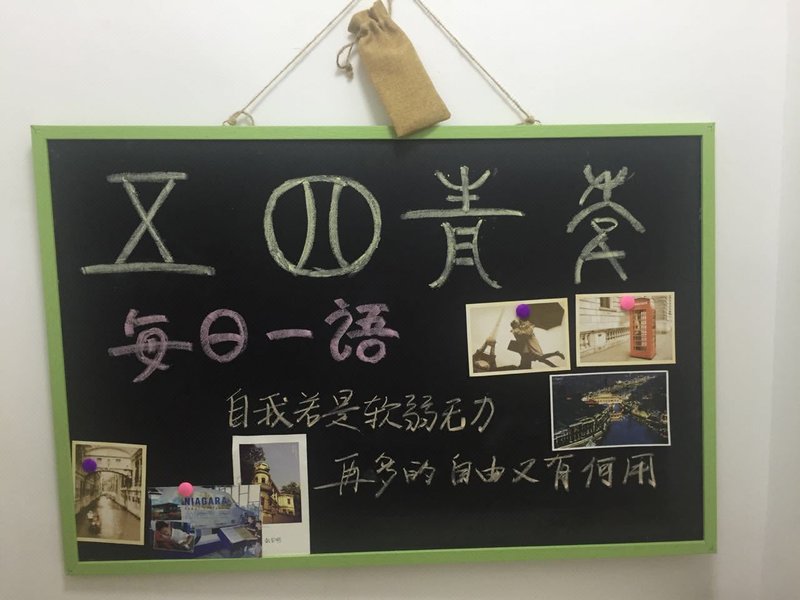 五四青
每日一語
自我若是软弱无力
再多的自由又有何用
NIAGARA